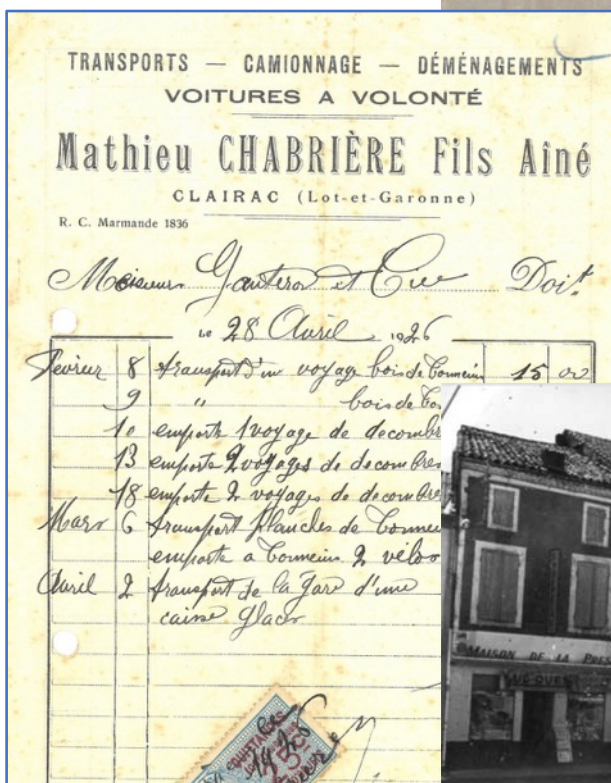 TRANSPORTS — CAMIONNAGE — DÉMÉNAGEMENTS
VOITURES A VOLONTÉ
Mathieu CHABRIÈRE Fils Aîné
CLAIRAC (Lot-et-Garonne)
R. C. Marmande 1836
et Cie Doit
LE 28 Avril 1926
Fevrier 8 transport d'un voyage bois de Tonneins 15 00
9 " bois de To
10 emporte 1 voyage de decombre
13 emporte 2 voyages de decombres
18 emporte 2 voyages de decombres
Mars 6 transport planches de Tonnei
emporte a Tonneins 2 vélos
Avril 2 transport de la Gare d'une
caisse glaces
QUITTANCES
25c
MAISON DE LA PRES
SUD OUEST